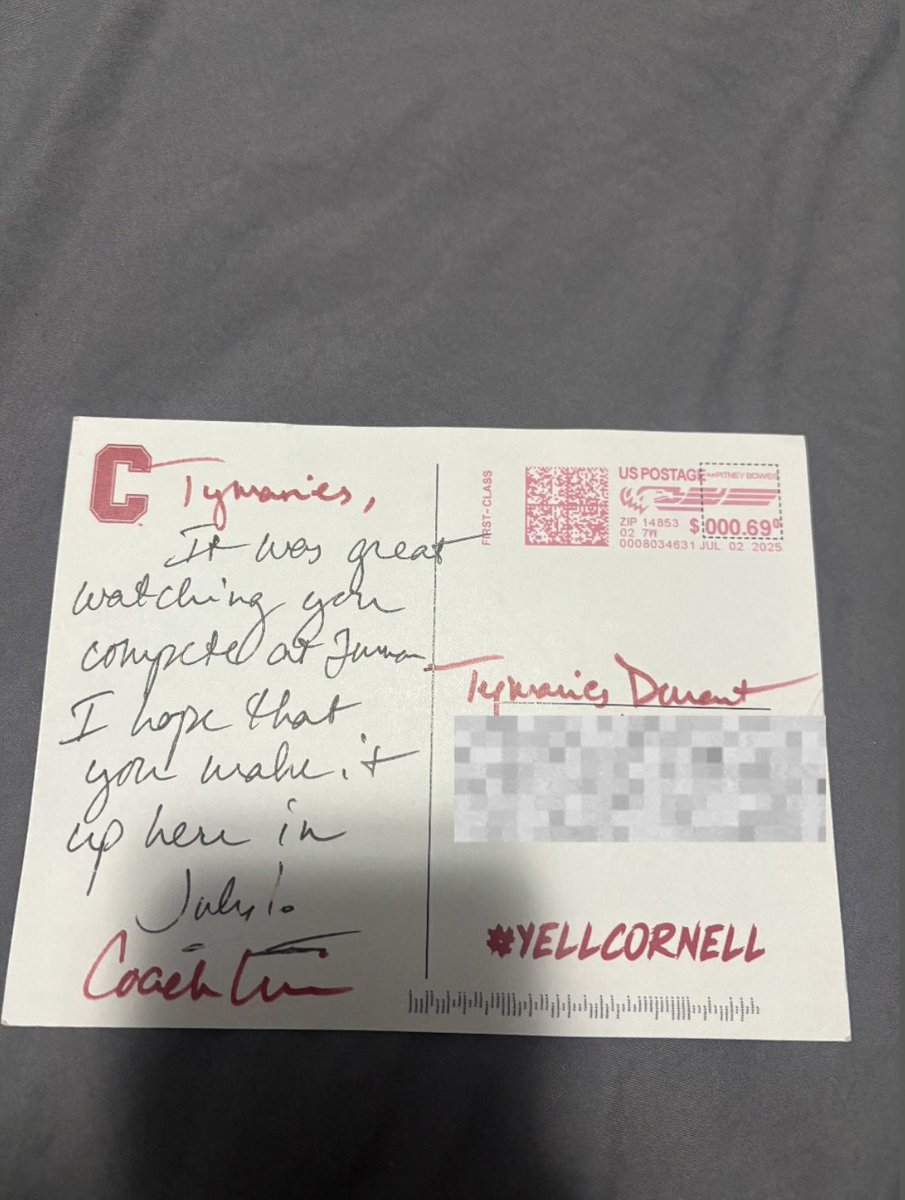 C
Tymaries,
It was great
watching you
compete at Furman
I hope that
you make it
up here in
July!
Coach
FIRST-CLASS
US POSTAGE PITNEY BOWES
ZIP 14853
02 7W
0008034631
$ 000.69⁰
JUL 02 2025
Tymaries
#YELLCORNELL